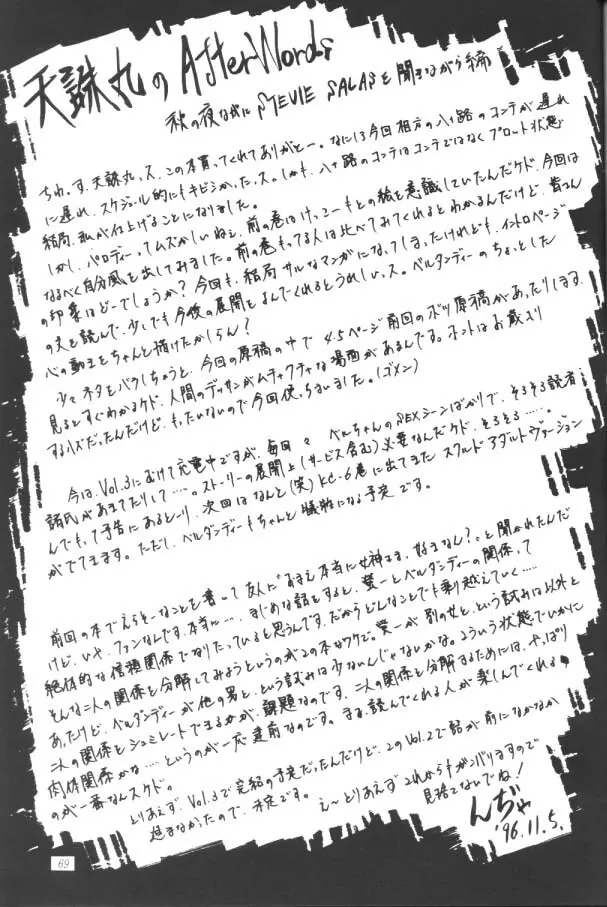 天誅丸の After Words
秋の夜ながに STEVIE SALASを聞きながら編
ちわ。す、天誅丸ッス、この本買ってくれてありがとー。なに13今回相方の八十路のコンテが遅れ
に遅れ、スケジュール的にもキビシかったッス。しかも、八十路のコンテはコンテではなくプロット状態
結局、私が仕上げることになりました。
しかし、パロディーってムズかしいねぇ、前の巻はけっこーもとの絵を意識していたんだケド、今回は
なるべく自分風を出してみました。前の巻もってる人は比べてみてくれるとわかるんだけど、皆さん
の印象はどーでしょうか？今回も、結局サルなマンガになってしまったけれども、イントロページ
の文を読んで、少しでも今後の展開をよんでくれるとうれしいッス。ベルダンディーのちょっとした
心の動きをちゃんと描けたかしらん？
少々ネタをバラしちゃうと、今回の原稿の中で 4.5ページ前回のボツ原稿があったりします。
見るとすぐわかるケド、人間のデッサンがムチャクチャな場面があるんです。ホントはお蔵入り
するハズだったんだけど、もったいないので今回使っちまいました。(ゴメン)
今は、Vol.3にむけて充電中ですが、毎回々 ベルちゃんのSEXシーンばかりで、そろそろ読者
諸氏があきてたりして…。ストーリーの展開上(サービス含む)必要なんだケド、そろそろ……。
んでもって予告にあるとーり、次回はなんと(笑)KC-6巻に出てきた スクルド アダルトヴァージョン
がでてきます。ただし、ベルダンディーもちゃんと犠牲になる予定です。
前回の本でえらそーなことを書いて友人に"おまえ本当に女神さま、好きなん?"と聞かれたんだ
けど、いや、ファンなんです、本当に…、まじめな話をすると、螢一とベルダンディーの関係って
絶体的な信頼関係でなりたっていると思うんです。だからどんなことでも乗り越えていく……
そんな二人の関係を分解してみようというのがこの本なワケで。螢一が 別の女と、という試みは以外と
あったけど、ベルダンディーが他の男と、という試みは少ないんじゃないかな。こういう状態でいかに
二人の関係をシュミレートできるかが、課題なのです。二人の関係を分解するためには、やっぱり
肉体関係かな…、というのが一応建前なのです。まぁ、読んでくれる人が楽しんでくれる
のが一番なんスケド。
とりあえず、Vol.3で完結の予定だったんだけど、このVol.2で話が前になかなか
進まなかったので、未定です。
え〜とりあえずこれからもガンバりますので
見捨てないでね！
んぢゃ
'96.11.5.
69